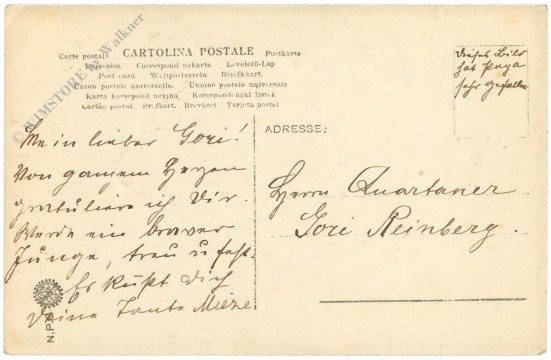 Carte postale CARTOLINA POSTALE Postkarte
Dopisnice. Correspondenzkarte Levelező-Lap
Post card Weltpostverein. Briefkaart.
Union postale universelle. Unione postale universale
Karta korespondencyjna Korespondenční lístek
Cartão postal. Brefkort. Brevkort Tarjeta postal
© WIMSTORE by Walkner
Dieses Bild
hat Papa
sehr gefallen
Mein lieber Gori!
Von ganzem Herzen
gratuliere ich Dir.
Werde ein braver
Junge, treu u fest.
Es küßt Dich
Deine Tante Mieze
ADRESSE:
Herrn Quartaner
Gori Reinberg.
N.P.G.